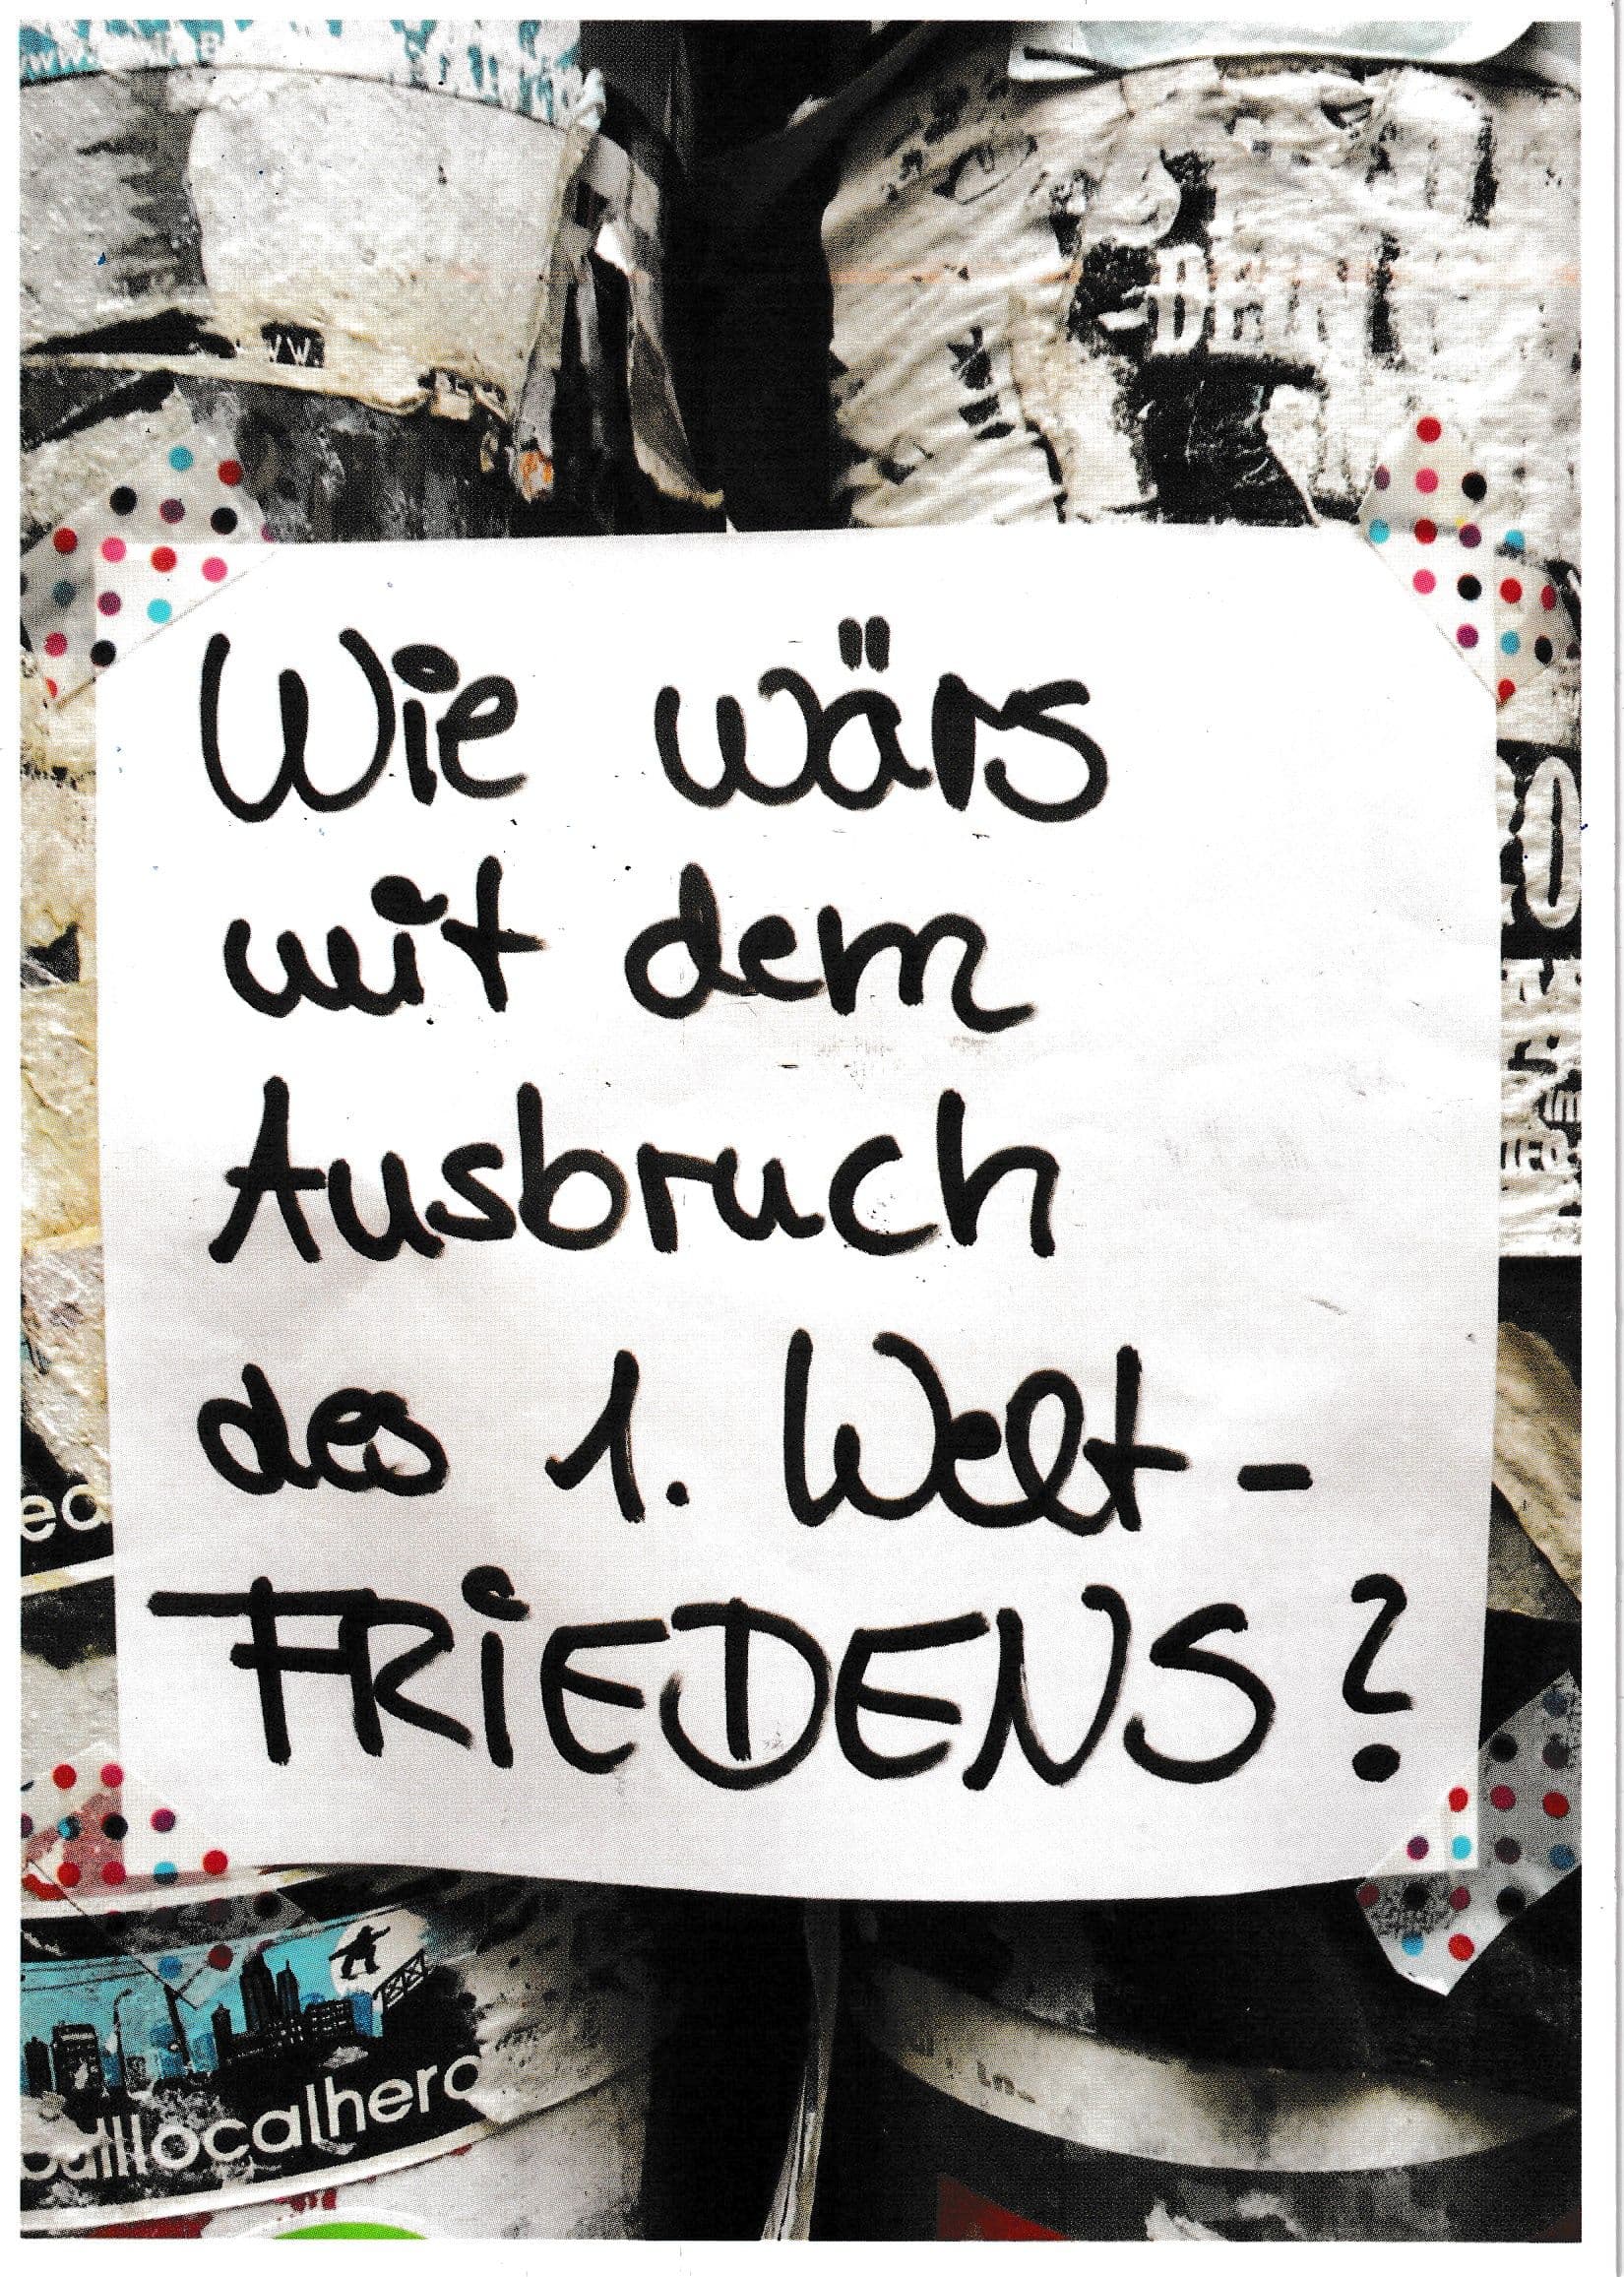 ww.
Wie wärs
mit dem
Ausbruch
des 1. Welt-
FRiEDENS?
localhero